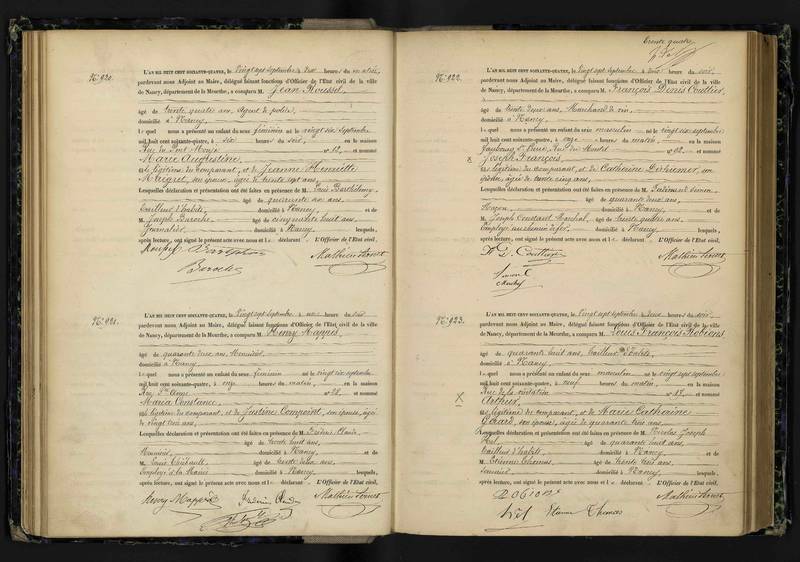 N.° 920.
L'AN MIL HUIT CENT SOIXANTE-QUATRE, le vingt sept Septembre à heures du matin,
pardevant nous Adjoint au Maire, délégué faisant fonctions d'Officier de l'Etat civil de la ville
de Nancy, département de la Meurthe, a comparu M. Jean Roussel,
âgé de trente quatre ans, Agent de police,
domicilié à Nancy,
lequel nous a présenté un enfant du sexe féminin né le vingt six Septembre
mil huit cent soixante-quatre, à six heures du soir, en la maison
Rue de n.° 12, et nommé
Marie Augustine,
légitime du comparant, et de Jeanne Henriette
Maigret, son épouse, âgée de trente sept ans,
Lesquelles déclaration et présentation ont été faites en présence de M. Louis Barthélemy
âgé de quarante un ans,
tailleur d'habits, domicilié à Nancy, et de
M. Joseph Baroche, âgé de cinquante huit ans,
Journalier, domicilié à Nancy, lesquels,
après lecture, ont signé le présent acte avec nous et le déclarant. L'Officier de l'Etat civil,
Roussel
Baroche
N.° 921.
L'AN MIL HUIT CENT SOIXANTE-QUATRE, le vingt sept Septembre à heures du soir
pardevant nous Adjoint au Maire, délégué faisant fonctions d'Officier de l'Etat civil de la ville
de Nancy, département de la Meurthe, a comparu M. Henry Mappés,
âgé de quarante deux ans, Menuisier,
domicilié à Nancy,
lequel nous a présenté un enfant du sexe féminin né le vingt six Septembre
mil huit cent soixante-quatre, à onze heures du matin, en la maison
Rue Ste Anne n.° 28, et nommé
Maria Constance,
légitime du comparant, et de Justine Compoint, son épouse, âgée
de vingt trois ans,
Lesquelles déclaration et présentation ont été faites en présence de M. Frédéric Claude,
âgé de trente huit ans,
Menuisier, domicilié à Nancy, et de
M. Louis Thiébault, âgé de trente deux ans,
Employé à la Mairie domicilié à Nancy, lesquels,
après lecture, ont signé le présent acte avec nous et le déclarant. L'Officier de l'Etat civil,
Henry Mappés
trente quatre
N.° 922.
L'AN MIL HUIT CENT SOIXANTE-QUATRE, le vingt sept Septembre à heure du soir,
pardevant nous Adjoint au Maire, délégué faisant fonctions d'Officier de l'Etat civil de la ville
de Nancy, département de la Meurthe, a comparu M. François Denis Couttier,
âgé de trente deux ans, Marchand de vin,
domicilié à Nancy,
lequel nous a présenté un enfant du sexe masculin né le vingt six Septembre
mil huit cent soixante-quatre, à onze heures du matin, en la maison
Faubourg St. Pierre, Rue du n.° 92, et nommé
Joseph François,
légitime du comparant, et de Catherine
âgée de trente cinq ans,
Lesquelles déclaration et présentation ont été faites en présence de M. Simon,
âgé de quarante deux ans,
Maçon, domicilié à Nancy, et de
M. Joseph Constant Maréchal, âgé de trente quatre ans,
Employé au chemin de fer, domicilié à Nancy, lesquels,
après lecture, ont signé le présent acte avec nous et le déclarant. L'Officier de l'Etat civil,
F. D. Couttier
N.° 923.
L'AN MIL HUIT CENT SOIXANTE-QUATRE, le vingt sept Septembre à deux heures du soir,
pardevant nous Adjoint au Maire, délégué faisant fonctions d'Officier de l'Etat civil de la ville
de Nancy, département de la Meurthe, a comparu M. Louis François Robions
âgé de quarante huit ans, tailleur d'habits,
domicilié à Nancy,
lequel nous a présenté un enfant du sexe masculin né le vingt sept Septembre
mil huit cent soixante-quatre, à neuf heures du matin, en la maison
Rue de la visitation n.° et nommé
Arthur,
légitime du comparant, et de Marie Catherine
son épouse, âgée de quarante trois ans,
Lesquelles déclaration et présentation ont été faites en présence de M. Nicolas Joseph
âgé de quarante ans,
tailleur d'habits, domicilié à Nancy, et de
M. Etienne Thomas, âgé de trente trois ans,
domicilié à Nancy, lesquels,
après lecture, ont signé le présent acte avec nous et le déclarant. L'Officier de l'Etat civil,
Etienne Thomas